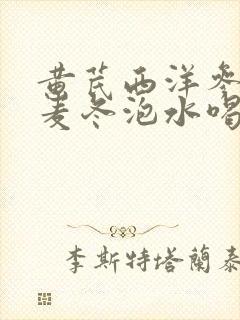 黄芪西洋参
麦冬泡水喝
李斯特塔蘭泰